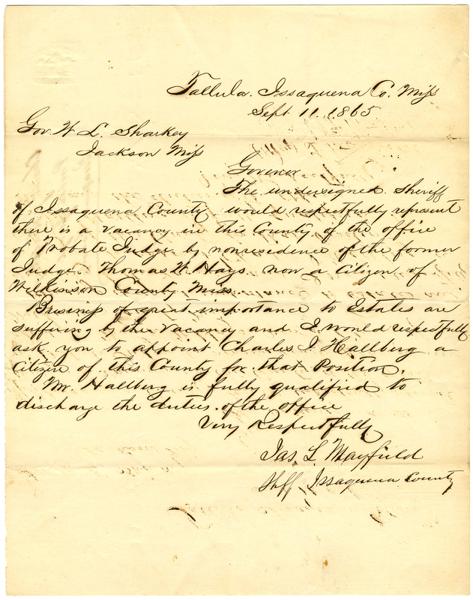 Tallula Issaquena Co. Miss
Sept 11. 1865
Gov W L. Sharkey
Jackson Miss
Govenor
The undersigned Sheriff
of Issaquena County would respectfully represent
there is a vacancy in this County of the office
of Probate Judge by nonresidence of the former
Judge Thomas W. Hays now a Citizen of
Wilkinson County Miss
Business of great importance to Estates are
suffering by the vacancy and I would respectfully
ask you to appoint Charles I Hallberg a
Citizen of this County for that Position.
Mr. Hallberg is fully qualified to
discharge the duties of the office
Very Respectfully
Jas. L Mayfield
Shff Issaquena County